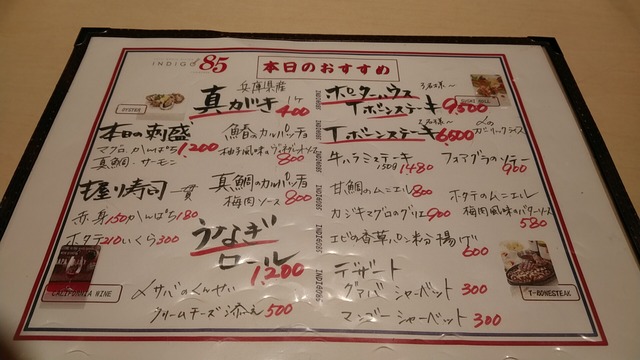 INDIGO 85
本日のおすすめ
OYSTER
兵庫県産
真がき 1ケ 400
本日の刺盛 1,200
マグロ、かんぱち
真鯛・サーモン
握り寿司 一貫
赤身150 かんぱち180
ホタテ210 いくら300
CALIFORNIA WINE
〆サバのくんせい
クリームチーズ添え 500
鰆のカルパッチョ
柚子風味の
800
真鯛のカルパッチョ
梅肉ソース 800
うなぎ
ロール
1,200
INDIGO85
INDIGO85
INDIGO85
INDIGO85
INDIGO85
INDIGO85
ポーターハウス 3名様～
Tボーンステーキ 9500
2名様～
Tボーンステーキ 6500
〆の
ガーリックライス
牛ハラミステーキ
150g 1480
フォアグラのソテー
900
甘鯛のムニエル 800
カジキマグロのグリエ 900
ホタテのムニエル
梅肉風味のバターソース
580
エビの香草パン粉揚げ
600
デザート
グァバシャーベット 300
マンゴーシャーベット 300
T-BONESTEAK